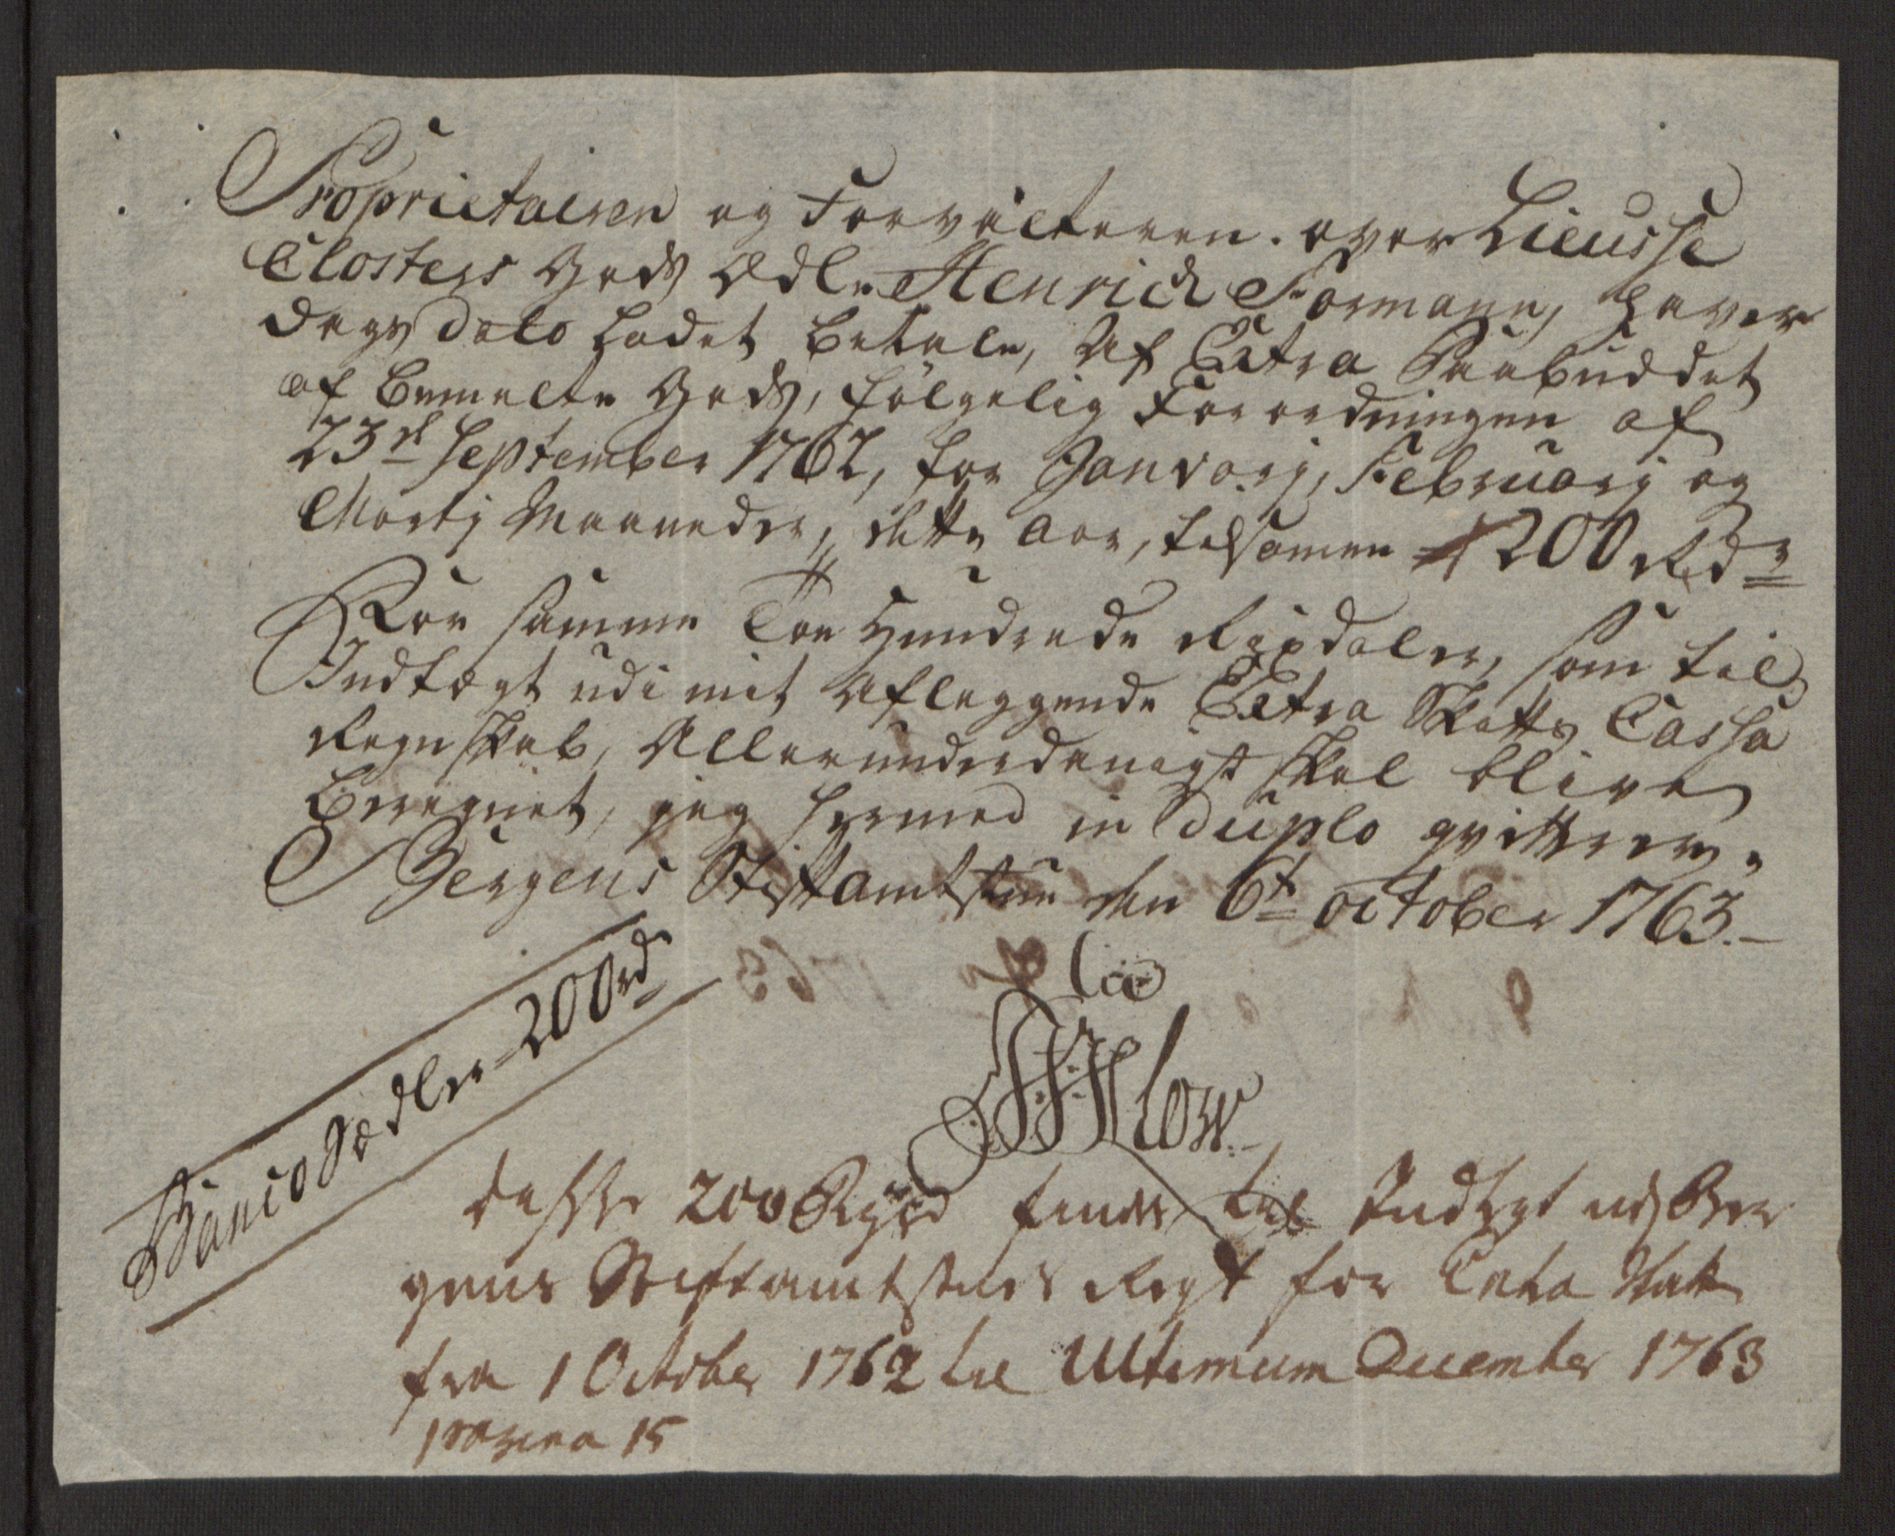 Proprietairen og Forvalteren over Lieusse
Closters Gods Ædle Henrich Formann, haver
dags dato ladet betale, Af Extra Paabuddet
af bemelte Gods, følgelig Forordningen af
23d September 1762, for Janvarj, Februarj og
Martj Maaneder, dette Aar, tilsamen 200 Rdr
For samme Toe Hundrede Rixdaler, som til
Indtægt udi mit aflæggende Extra Skatts Cassa
Regnskab, Allerunderdanigst skal blive
beregnet, jeg hermed in duplo qvitterer,
Bergens Stiftamtstue den 6t october 1763.
Banco Sedler 200 rd
Low
Disse 200 Rixd findes til Indtægt udj Ber
gens Stiftamtstues Regsk for Extra Skatt
fra 1 October 1762 til Ultimum December 1763
pagina 15